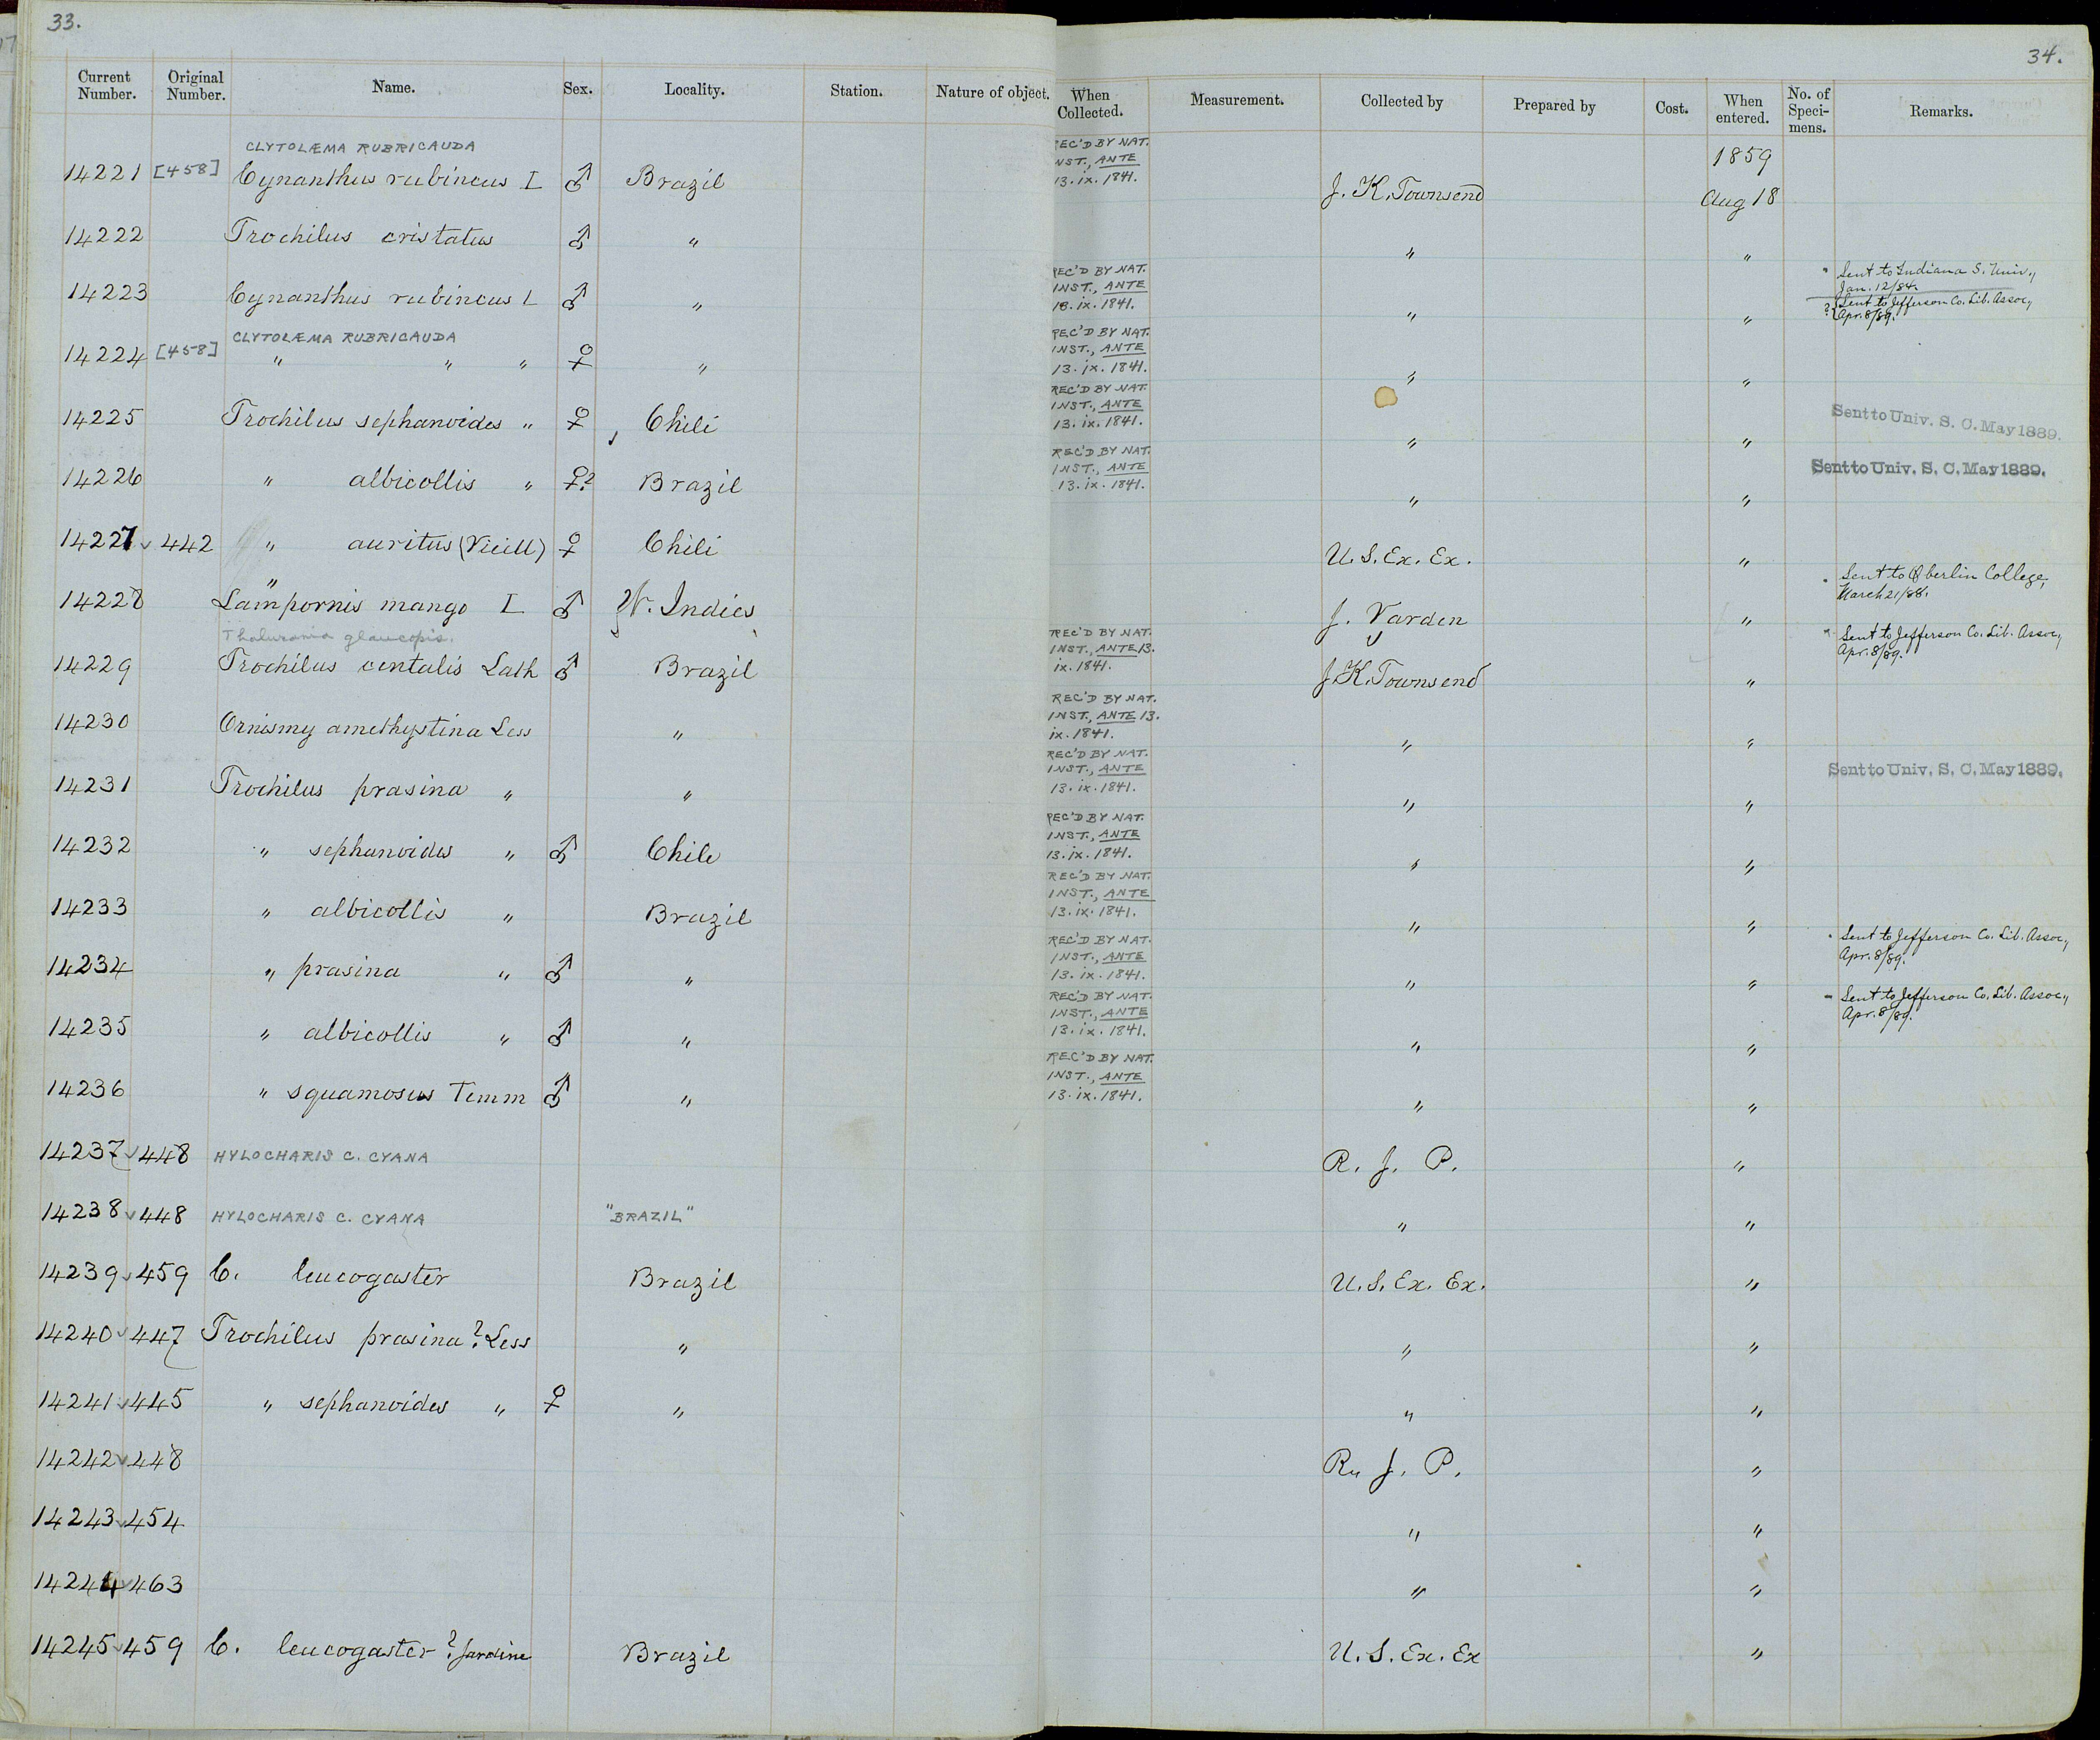 33.
34.
Current Number. Original Number. Name. Sex. Locality. Station. Nature of object. When Collected. Measurement. Collected by Prepared by Cost. When entered. No. of Speci-mens. Remarks.
CLYTOLÆMA RUBRICAUDA REC'D BY NAT. INST., ANTE 13.ix.1841. 1859
14221 [458] Cynanthus rubineus L ♂ Brazil J. K. Townsend Aug 18
14222 Trochilus cristatus ♂ " " "
14223 Cynanthus rubineus L ♂ " REC'D BY NAT. INST., ANTE 13.ix.1841. " " Sent to Indiana S. Univ., Jan. 12/84. ? { Sent to Jefferson Co. Lib. Assoc., Apr. 8/89.
CLYTOLÆMA RUBRICAUDA
14224 [458] " " " ♀ " REC'D BY NAT. INST., ANTE 13.ix.1841. " "
14225 Trochilus sephanoides " ♀ Chili REC'D BY NAT. INST., ANTE 13.ix.1841. " " Sent to Univ. S. C. May 1889.
14226 " albicollis " ♀? Brazil REC'D BY NAT. INST., ANTE 13.ix.1841. " " Sent to Univ. S. C. May 1889.
14227 442 " auritus (Vieill) ♀ Chili U. S. Ex. Ex. "
14228 Lampornis mango L ♂ W. Indies J. Varden " Sent to Oberlin College, March 21/88.
Thalurania glaucopis.
14229 Trochilus centalis Lath ♂ Brazil REC'D BY NAT. INST., ANTE 13. ix.1841. J. K. Townsend " Sent to Jefferson Co. Lib. Assoc., Apr. 8/89.
14230 Ornismy amethystina Less " REC'D BY NAT. INST., ANTE 13. ix.1841. " "
14231 Trochilus prasina " " REC'D BY NAT. INST., ANTE 13.ix.1841. " " Sent to Univ. S. C. May 1889.
14232 " sephanoides " ♂ Chile REC'D BY NAT. INST., ANTE 13.ix.1841. " "
14233 " albicollis " Brazil REC'D BY NAT. INST., ANTE 13.ix.1841. " "
14234 " prasina " ♂ " REC'D BY NAT. INST., ANTE 13.ix.1841. " " Sent to Jefferson Co. Lib. Assoc., Apr. 8/89.
14235 " albicollis " ♂ " REC'D BY NAT. INST., ANTE 13.ix.1841. " " Sent to Jefferson Co. Lib. Assoc., Apr. 8/89.
14236 " squamosus Temm ♂ " REC'D BY NAT. INST., ANTE 13.ix.1841. " "
14237 448 HYLOCHARIS C. CYANA R. J. P. "
14238 448 HYLOCHARIS C. CYANA "BRAZIL" " "
14239 459 C. leucogaster Brazil U. S. Ex. Ex. "
14240 447 Trochilus prasina? Less " " "
14241 445 " sephanoides " ♀ " " "
14242 448 R. J. P. "
14243 454 " "
14244 463 " "
14245 459 C. leucogaster? Jardine Brazil U. S. Ex. Ex "